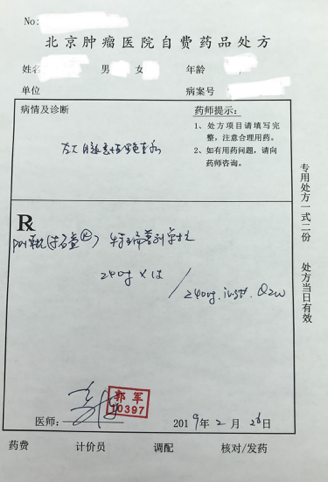 No:
北京肿瘤医院自费药品处方
姓名 男 女 年龄
单位 病案号
病情及诊断
药师提示：
1、处方项目请填写完
整，注意合理用药。
2、如有用药问题，请向
药师咨询。
恶性黑色素瘤
专用处方一式二份 处方当日有效
R
PD1单抗(拓益®) 特瑞普利单抗
240mg ×
/ 240mg. ivgtt. Q2w
郭军
10397
医师：
2019年2月26日
药费 计价员 调配 核对/发药